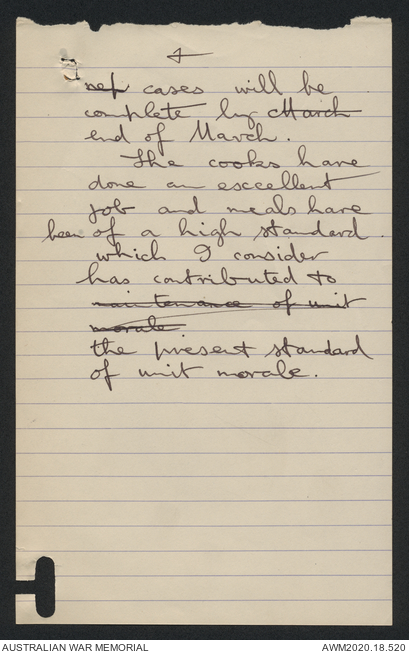 4
ref cases will be
complete by March
end of March.
The cooks have
done an esccellent
job and meals have
been of a high standard.
which I consider
has contributed to
maintenance of unit
morale
the present standard
of unit morale.
AUSTRALIAN WAR MEMORIAL
AWM2020.18.520